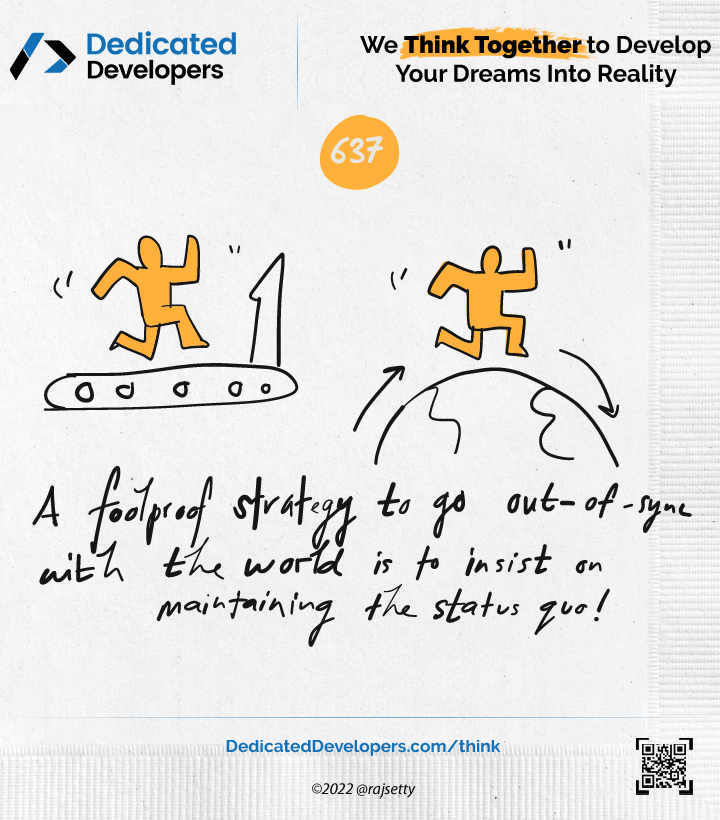 Dedicated
Developers
We Think Together to Develop
Your Dreams Into Reality
637
A foolproof strategy to go out-of-sync
with the world is to insist on
maintaining the status quo!
DedicatedDevelopers.com/think
©2022 @rajsetty